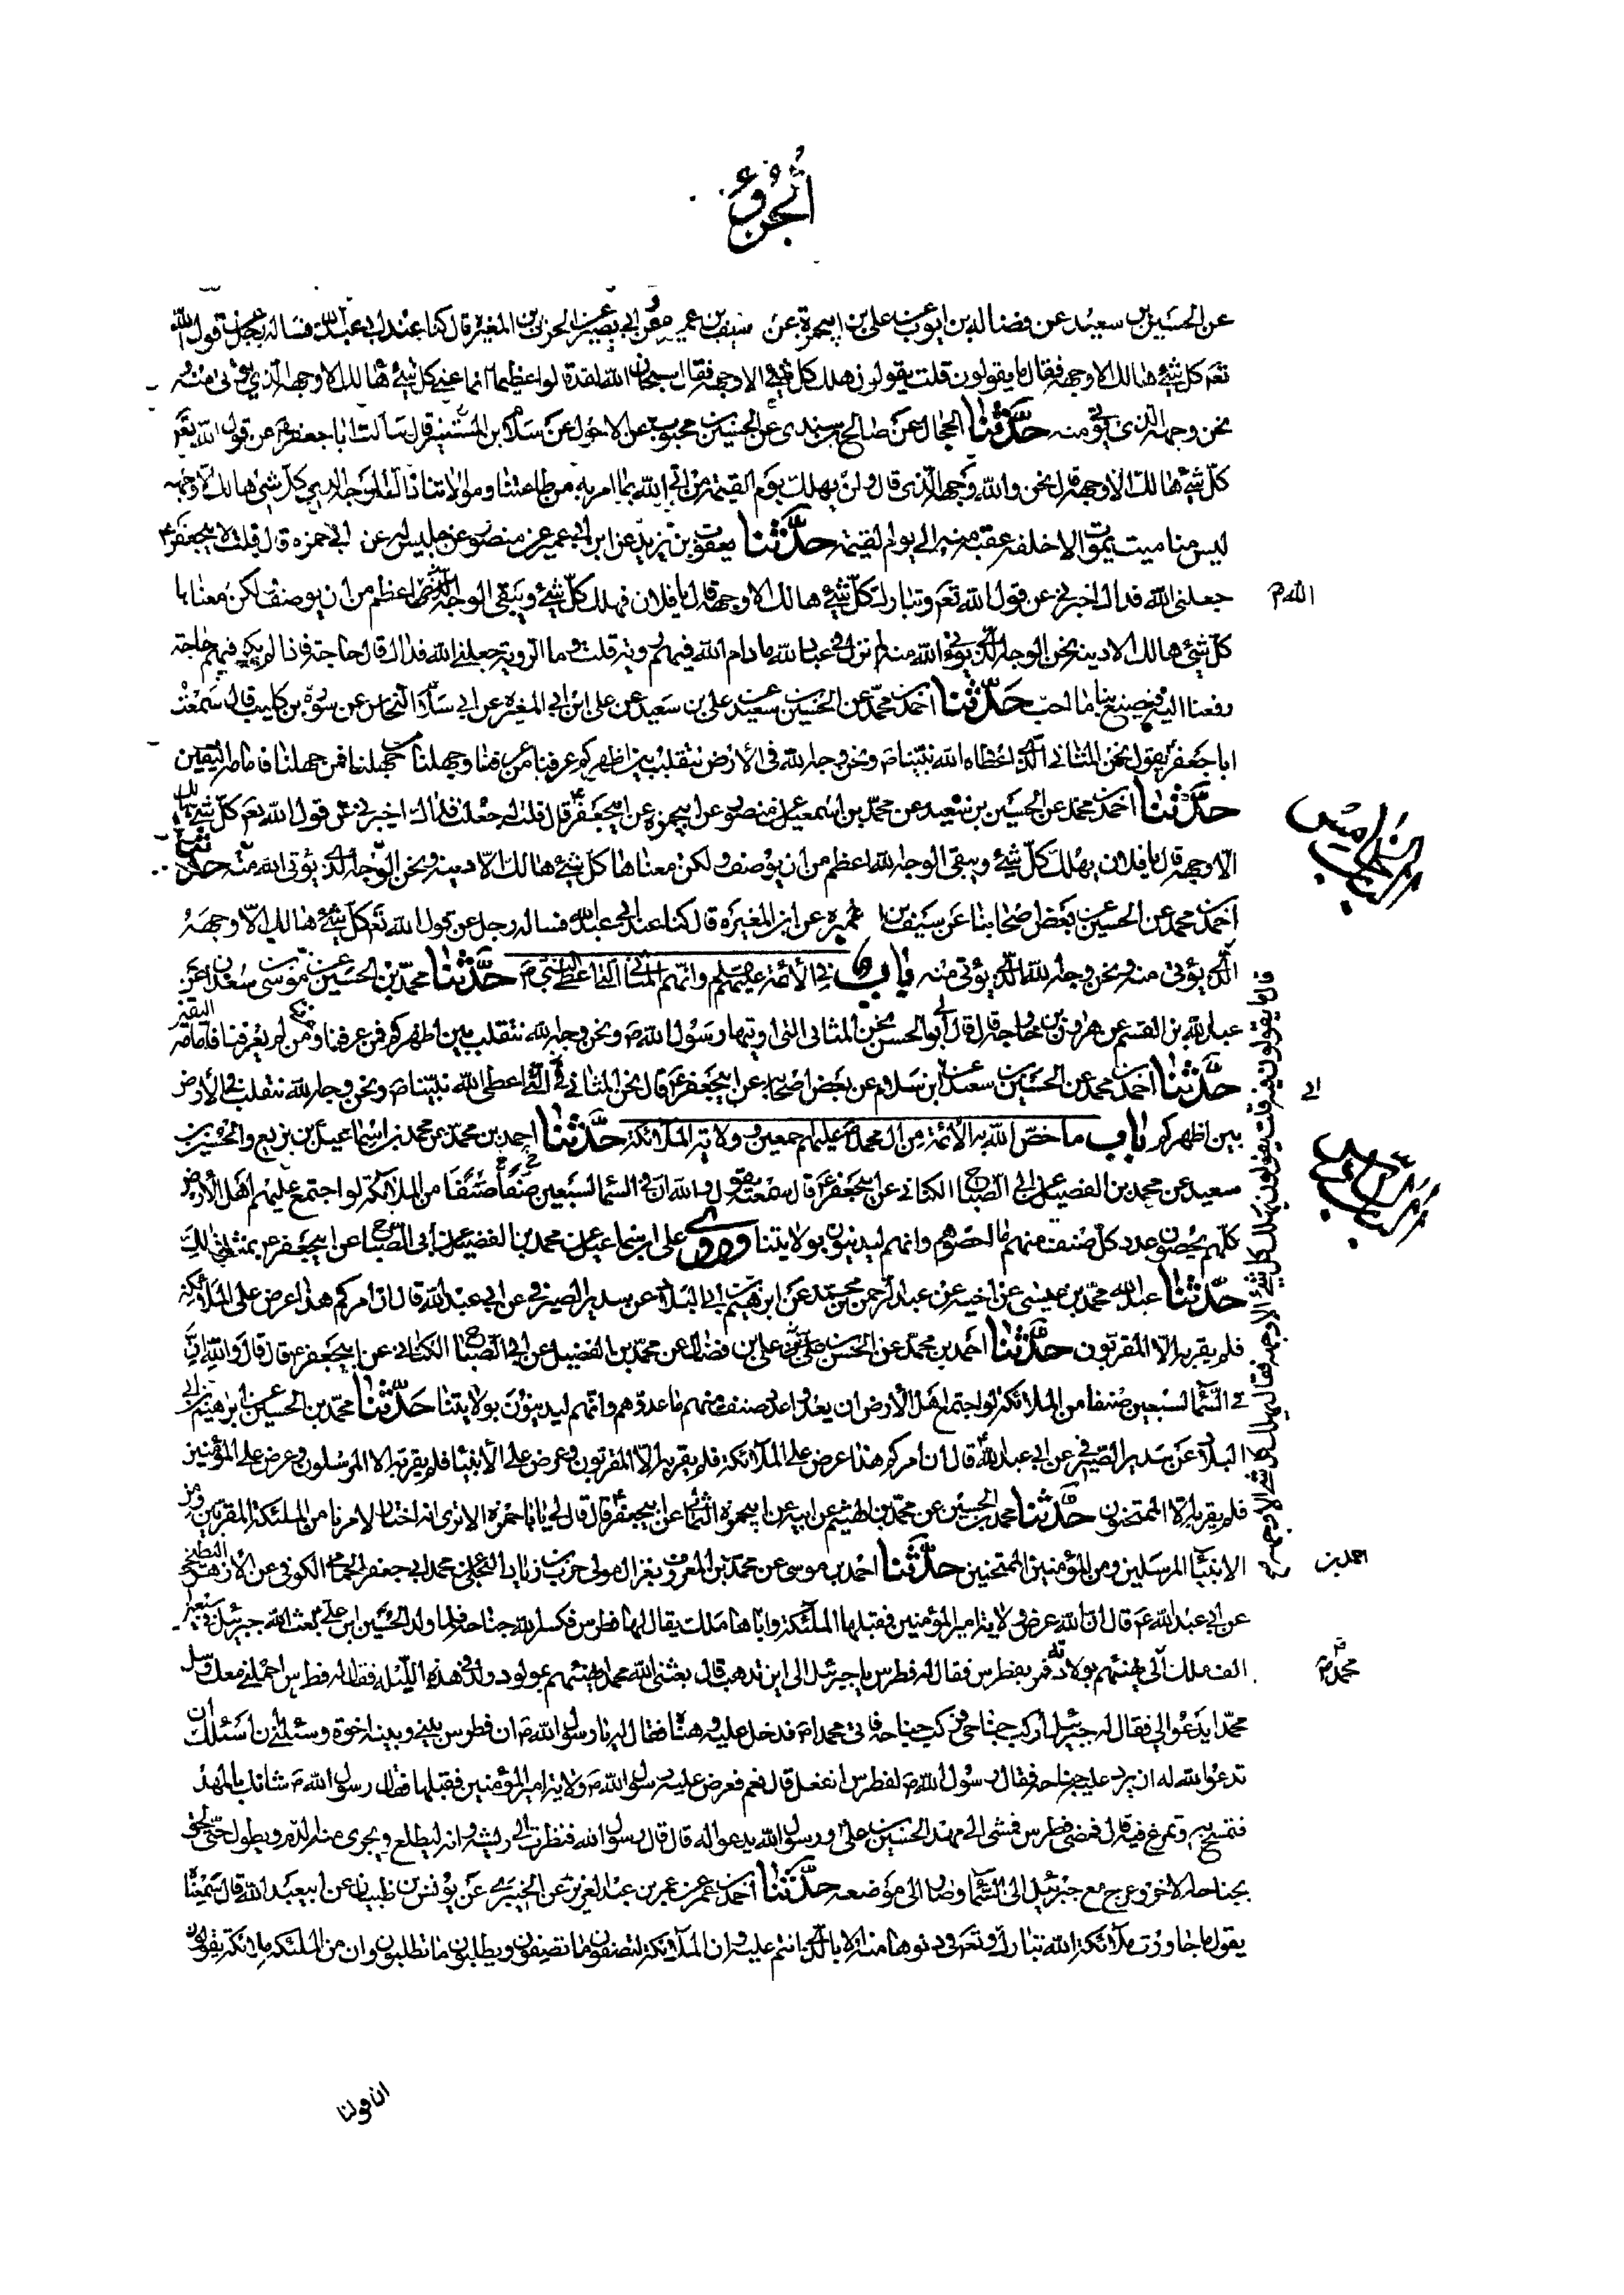 الجزو
عن الحسين بن سعيد عن فضالة بن ايوب عن على بن ابيحمزة عن سيف بن عمير عن ابى بصير عن الحرث بن المغيرة قال كنا عند ابى عبد الله فساله رجل عن قول الله
تعم كل شئ هالك الا وجهه فقال ما يقولون قلت يقولون هلك كل شئ الا وجهه فقال سبحان الله لقد قالوا عظيما انما عنى كل شئ هالك الا وجهه الذى يؤتى منه و
نحن وجهه الذى يؤتى منه حدّثنا الحجال عن صالح بن سندى عن الحسن بن محبوب عن الاحول عن سلام بن المستنير قال سالت ابا جعفر عن قول الله تعم
كل شئ هالك الا وجهه قال نحن والله وجهه الذى قال ولن يهلك يوم القيمة من اتى الله بما امر به من طاعتنا وموالاتنا ذاك الوجه الذى كل شئ هالك الا وجهه
ليس منا ميت يموت الا خلفه عقبه منه الى يوم القيمة حدّثنا يعقوب بن يزيد عن ابن ابى عمير عن منصور عن جليس له عن ابى حمزه قال قلت لابيجعفر ع
جعلنى الله فداك اخبرنى عن قول الله تعم وتبارك كل شئ هالك الا وجهه قال يا فلان فهلك كل شئ ويبقى الوجه الله اعظم من ان يوصف لكن معناها
كل شئ هالك الا دينه نحن الوجه الذى يؤتى الله منه لم نزل فى عباد الله ما دام الله فيهم روية قلت وما الروية جعلنى الله فداك قال حاجة فاذا لم يكن فيهم حاجة
رفعنا اليه فيصنع بنا ما احب حدّثنا احمد بن محمد عن الحسين بن سعيد عن على بن سعيد عن على ابن ابى المغيره عن ابى سلام النخاس عن سورة بن كليب قال سمعت
ابا جعفر يقول نحن المثانى الذى اعطاه الله نبينا ص ونحن وجه الله فى الأرض نتقلب بين اظهركم عرفنا من عرفنا وجهلنا من جهلنا فمن جهلنا فامامه اليقين
حدّثنا احمد بن محمد عن الحسين بن سعيد عن محمد بن اسمعيل عن منصور عن ابيحمزه عن ابيجعفر ع قال قلت له جعلت فداك اخبرنى عن قول الله تعم كل شئ هالك
الا وجهه قال يا فلان يهلك كل شئ ويبقى الوجه الله اعظم من ان يوصف ولكن معناها كل شئ هالك الا دينه ونحن الوجه الذى يؤتى الله منه حدّثنا
احمد بن محمد عن الحسين عن بعض اصحابنا عن سيف بن عميره عن ابن المغيره قال كنا عند ابى عبد الله فساله رجل عن قول الله تعم كل شئ هالك الا وجهه
الذى يؤتى منه ونحن وجه الله الذى يؤتى منه باب فى الأئمة عليهم السلم وانهم المثانى التى اعطى النبى ص حدّثنا محمد بن الحسين عن موسى بن سعدان عن
عبد الله بن القسم عن هرون بن خارجة قال قال لى ابو الحسن نحن المثانى التى اوتيها رسول الله ص ونحن وجه الله نتقلب بين اظهركم فمن عرفنا ومن لم يعرفنا فامامه اليقين
حدّثنا احمد بن محمد عن الحسين بن سعيد عن ابن سلام عن بعض اصحابه عن ابيجعفر ع قال نحن المثانى التى اعطى الله نبينا ص ونحن وجه الله نتقلب فى الأرض
بين اظهركم باب ما خص الله به الأئمة من ال محمد ص عليهم اجمعين وولاية الملائكة حدّثنا احمد بن محمد عن محمد بن اسماعيل بن بزيع والحسين بن
سعيد عن محمد بن الفضيل عن ابى الصباح الكنانى عن ابيجعفر ع قال سمعته يقول والله ان فى السماء لسبعين صنفا من الملائكة لو اجتمع عليهم اهل الأرض
كلهم يحصون عدد كل صنف منهم ما احصوهم وانهم ليدينون بولايتنا وروى على ابن اسماعيل عن محمد بن الفضيل عن ابى الصباح عن ابيجعفر ع بمثل ذلك
حدّثنا عبد الله محمد بن عيسى عن اخيه عن عبد الرحمن بن محمد عن ابرهيم بن ابى البلاد عن سدير الصيرفى عن ابى عبد الله قال ان امركم هذا عرض على الملائكة
فلم يقر به الا المقربون حدّثنا احمد بن محمد عن الحسن بن على بن فضال عن محمد بن الفضيل عن ابى الصباح الكنانى عن ابيجعفر ع قال قال والله ان
فى السماء لسبعين صنفا من الملائكة لو اجتمع اهل الأرض ان يعدوا عدد صنف منهم ما عدوهم وانهم ليدينون بولايتنا حدّثنا محمد بن الحسين عن ابرهيم بن ابى
البلاد عن سدير الصيرفى عن ابى عبد الله ع قال ان امركم هذا عرض على الملائكة فلم يقر به الا المقربون وعرض على الأنبياء فلم يقر به الا المرسلون وعرض على المؤمنين
فلم يقر به الا الممتحنون حدّثنا محمد بن الحسين عن محمد بن الهيثم عن ابيه عن ابيحمزه الثمالى عن ابيجعفر ع قال قال لى يا ابا حمزه الا ترى انه اختار لامرنا من الملئكة المقربين ومن
الانبياء المرسلين ومن المؤمنين الممتحنين حدّثنا احمد بن موسى عن محمد بن المعروف بغزال مولى حرب بن زياد البجلى عن محمد ابى جعفر الحمامى الكوفى عن الأزهر البطيخى
عن ابى عبد الله ع قال ان الله عرض ولاية امير المؤمنين فقبلها الملئكة واباها ملك يقال لها فطرس فكسر الله جناحه فلما ولد الحسين ابن على ع بعث الله جبرئيل فى سبعين
الف ملك الى محمد يهنئهم بولادته فمر بفطرس فقال له فطرس يا جبرئيل الى اين تذهب قال بعثنى الله محمدا يهنئهم بمولود ولد فى هذه الليلة فقال له فطرس احملنى معك وسل
محمدا يدعو لى فقال له جبرئيل اركب جناحى فركب جناحه فاتى محمدا ص فدخل عليه وهناه فقال له يا رسول الله ص ان فطرس بينى وبينه اخوة وسئلنى ان اسئلك ان
تدعو الله له ان يرد عليه جناحه فقال رسول الله ص لفطرس اتفعل قال نعم فعرض عليه رسول الله ص ولاية امير المؤمنين فقبلها فقال رسول الله ص شانك بالمهد
فتمسح به وتمرغ فيه قال فمضى فطرس فمشى الى مهد الحسين بن على ع ورسول الله يدعو له قال قال رسول الله فنظرت الى ريشه وانه ليطلع ويجرى منه الدم ويطول حتى لحق
بجناحه الاخر وعرج مع جبرئيل الى السماء وصار الى موضعه حدّثنا احمد بن عمر بن عبد العزيز عن الخيبرى عن يونس بن ظبيان عن ابيعبد الله قال سمعته
يقول ما جاورت ملائكة الله تبارك وتعم فى دنوها منه الا بالذى انتم عليه وان الملائكة لتصفون ما تصفون ويطلبون ما تطلبون وان من الملئكة ملائكة يقولون
الله م
الباب الخامس
قال ما يقولون فيه قلت يقولون يهلك كل شئ الا وجهه فقال يهلك كل شئ الا وجهه
ابى
الباب السادس
احمد بن
محمد ص
ان قولنا